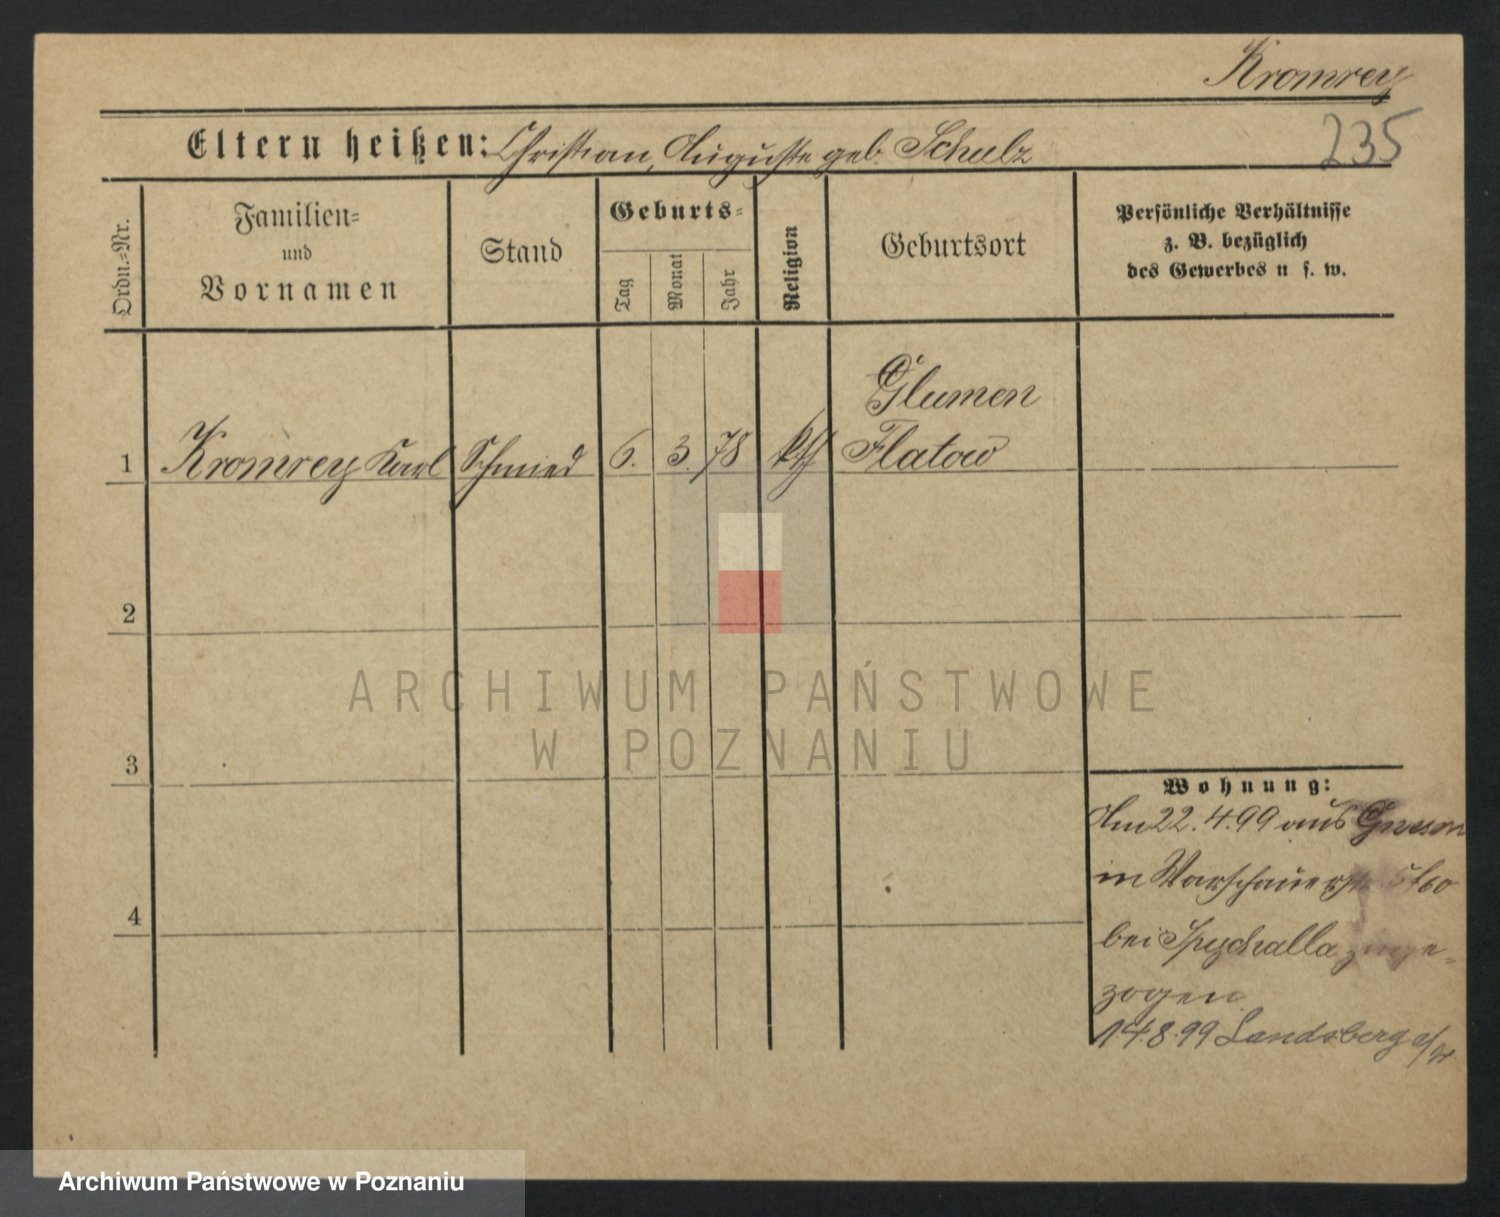 Kromrey
235
Eltern heißen: Christian, Auguste geb Schulz
Ordn.-Nr.
Familien-
und
Vornamen
Stand
Geburts-
Tag
Monat
Jahr
Religion
Geburtsort
Persönliche Verhältnisse
z. B. bezüglich
des Gewerbes u s. w.
1 Kromrey Karl Schmied 6. 3. 78 kth Glumen
Flatow
2
3
4
Wohnung:
Am 22.4.99 aus Gnesen
in Warschauerstr
bei Spychalla zuge-
zogen
14.8.99 Landsberg a/W
ARCHIWUM PAŃSTWOWE
W POZNANIU
Archiwum Państwowe w Poznaniu